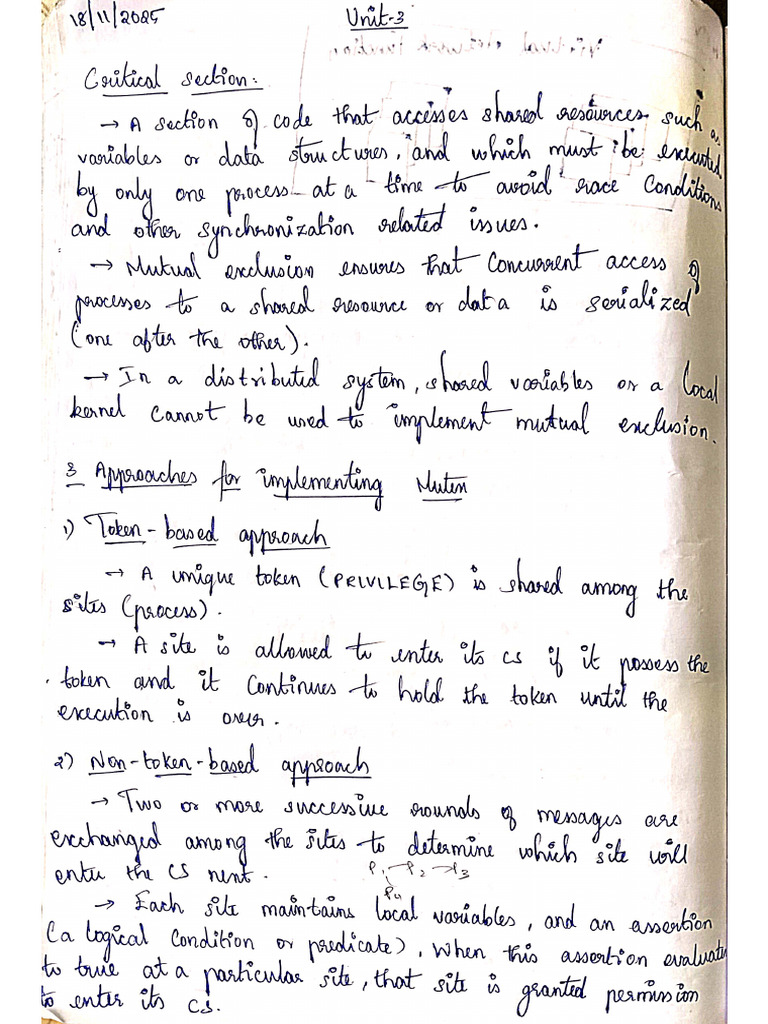 18/11/2025
Unit-3
Critical section:
→ A section of code that accesses shared resources such as
variables or data structures, and which must be executed
by only one process at a time to avoid race Conditions
and other synchronization related issues.
→ Mutual exclusion ensures that Concurrent access of
processes to a shared resource or data is serialized
(one after the other).
→ In a distributed system, shared variables or a local
kernel cannot be used to implement mutual exclusion.
3 Approaches for implementing Mutex
1) Token-based approach
→ A unique token (PRIVILEGE) is shared among the
sites (process).
→ A site is allowed to enter its CS if it possess the
token and it continues to hold the token until the
execution is over.
2) Non-token-based approach
→ Two or more successive rounds of messages are
exchanged among the sites to determine which site will
enter the CS next.
P1 → P2 → P3
P4
→ Each site maintains local variables, and an assertion
(a logical condition or predicate), when this assertion evaluates
to true at a particular site, that site is granted permission
to enter its CS.